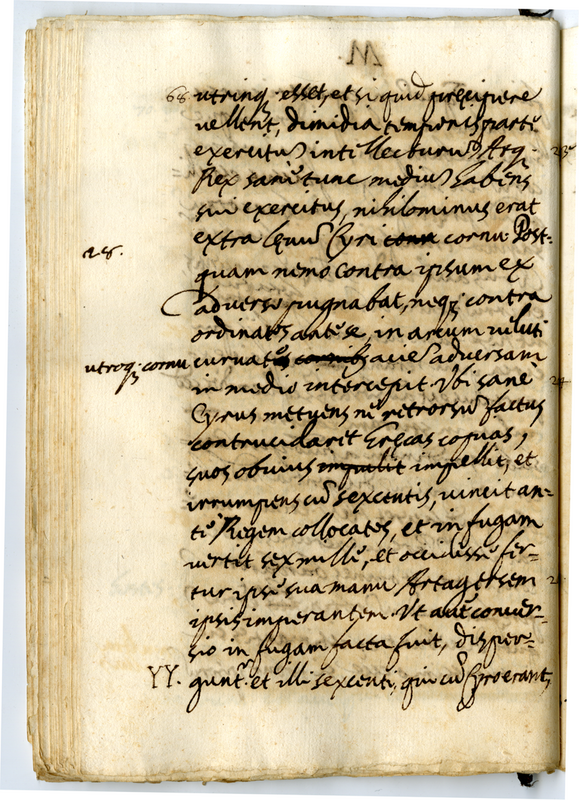 68 utrinq; esset, et si quid precipere
vellent, dimidia temporis parte
exercitus intellecturus. Atq.
Rex sane tunc medius habens
sui exercitus, nihilominus erat
extra levum Cyri cornu. Post-
28.
quam nemo contra ipsum ex
adverso pugnabat, neq; contra
ordinatos ante se, in arcum veluti
utroq; cornu curvata acie adversam
in medio intercepit. Ubi sane
Cyrus metuens ne retrorsum factus
contrucidaret Grecas copias,
suos obvius impulit impellit, et
irrumpens cum sexcentis, vincit an-
te Regem collocatos, et in fugam
vertit sex mille, et occidisse fer-
tur ipse sua manu Artagersem
ipsis imperantem. Ut aute conver-
sio in fugam facta fuit, disper-
YY. gunt. et illi sexcenti, qui cum Cyro erant,